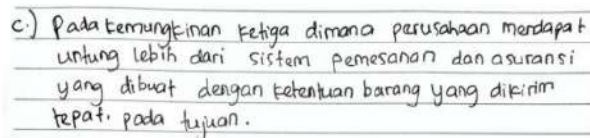 c.) Pada kemungkinan ketiga dimana perusahaan mendapat
untung lebih dari sistem pemesanan dan asuransi
yang dibuat dengan ketentuan barang yang dikirim
tepat. pada tujuan.